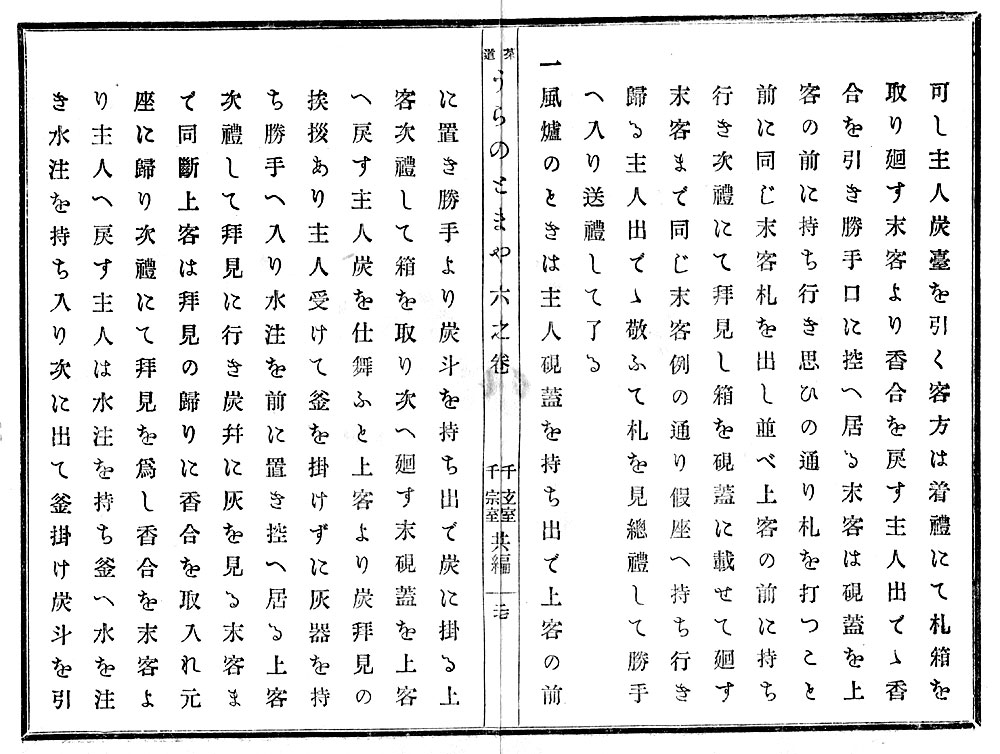 可し主人炭臺を引く客方は着禮にて札箱を
取り廻す末客より香合を戻す主人出てゝ香
合を引き勝手口に控へ居る末客は硯蓋を上
客の前に持ち行き思ひの通り札を打つこと
前に同じ末客札を出し並べ上客の前に持ち
行き次禮にて拜見し箱を硯蓋に載せて廻す
末客まで同じ末客例の通り假座へ持ち行き
歸る主人出でゝ敬ふて札を見總禮して勝手
へ入り送禮して了る
一風爐のときは主人硯蓋を持ち出で上客の前
茶道うらのとまや六之卷
千玄室
千宗室
共編
に置き勝手より炭斗を持ち出で炭に掛る上
客次禮して箱を取り次へ廻す末硯蓋を上客
へ戻す主人炭を仕舞ふと上客より炭拜見の
挨拶あり主人受けて釜を掛けずに灰器を持
ち勝手へ入り水注を前に置き控へ居る上客
次禮して拜見に行き炭幷に灰を見る末客ま
で同斷上客は拜見の歸りに香合を取入れ元
座に歸り次禮にて拜見を爲し香合を末客よ
り主人へ戻す主人は水注を持ち釜へ水を注
き水注を持ち入り次に出て釜掛け炭斗を引